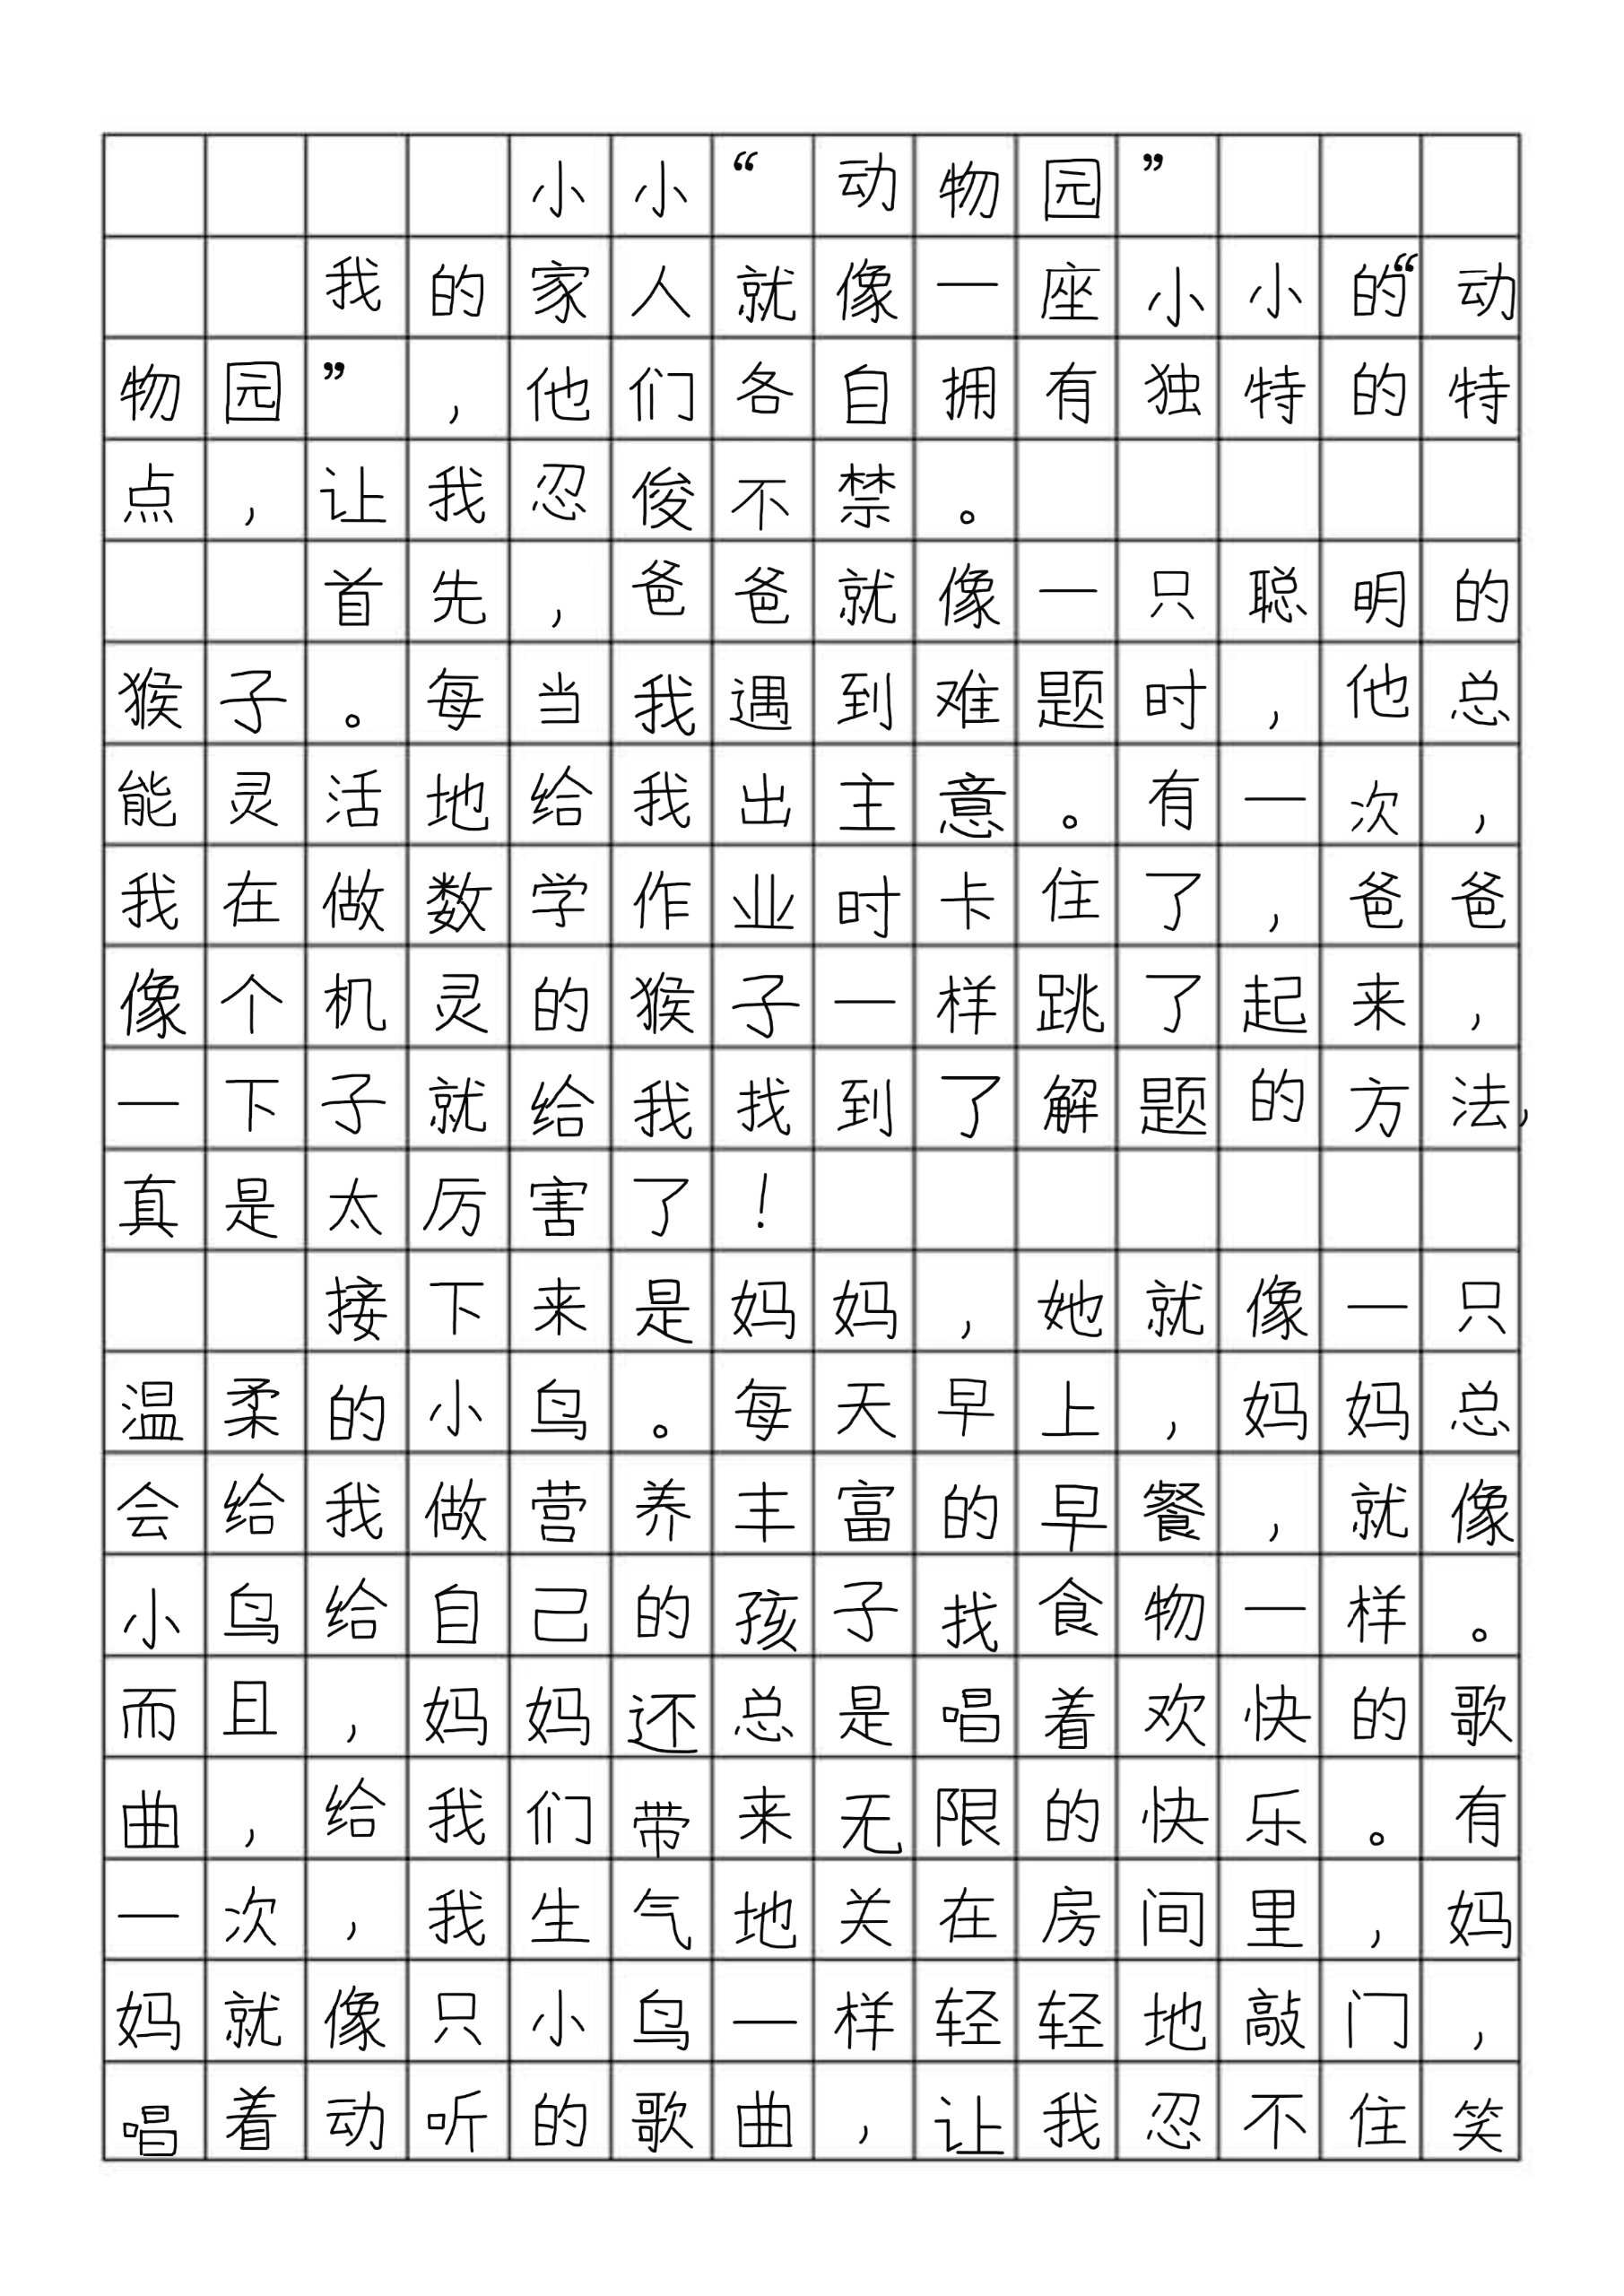 小小“动物园”
我的家人就像一座小小的“动
物园”，他们各自拥有独特的特
点，让我忍俊不禁。
首先，爸爸就像一只聪明的
猴子。每当我遇到难题时，他总
能灵活地给我出主意。有一次，
我在做数学作业时卡住了，爸爸
像个机灵的猴子一样跳了起来，
一下子就给我找到了解题的方法，
真是太厉害了！
接下来是妈妈，她就像一只
温柔的小鸟。每天早上，妈妈总
会给我做营养丰富的早餐，就像
小鸟给自己的孩子找食物一样。
而且，妈妈还总是唱着欢快的歌
曲，给我们带来无限的快乐。有
一次，我生气地关在房间里，妈
妈就像只小鸟一样轻轻地敲门，
唱着动听的歌曲，让我忍不住笑